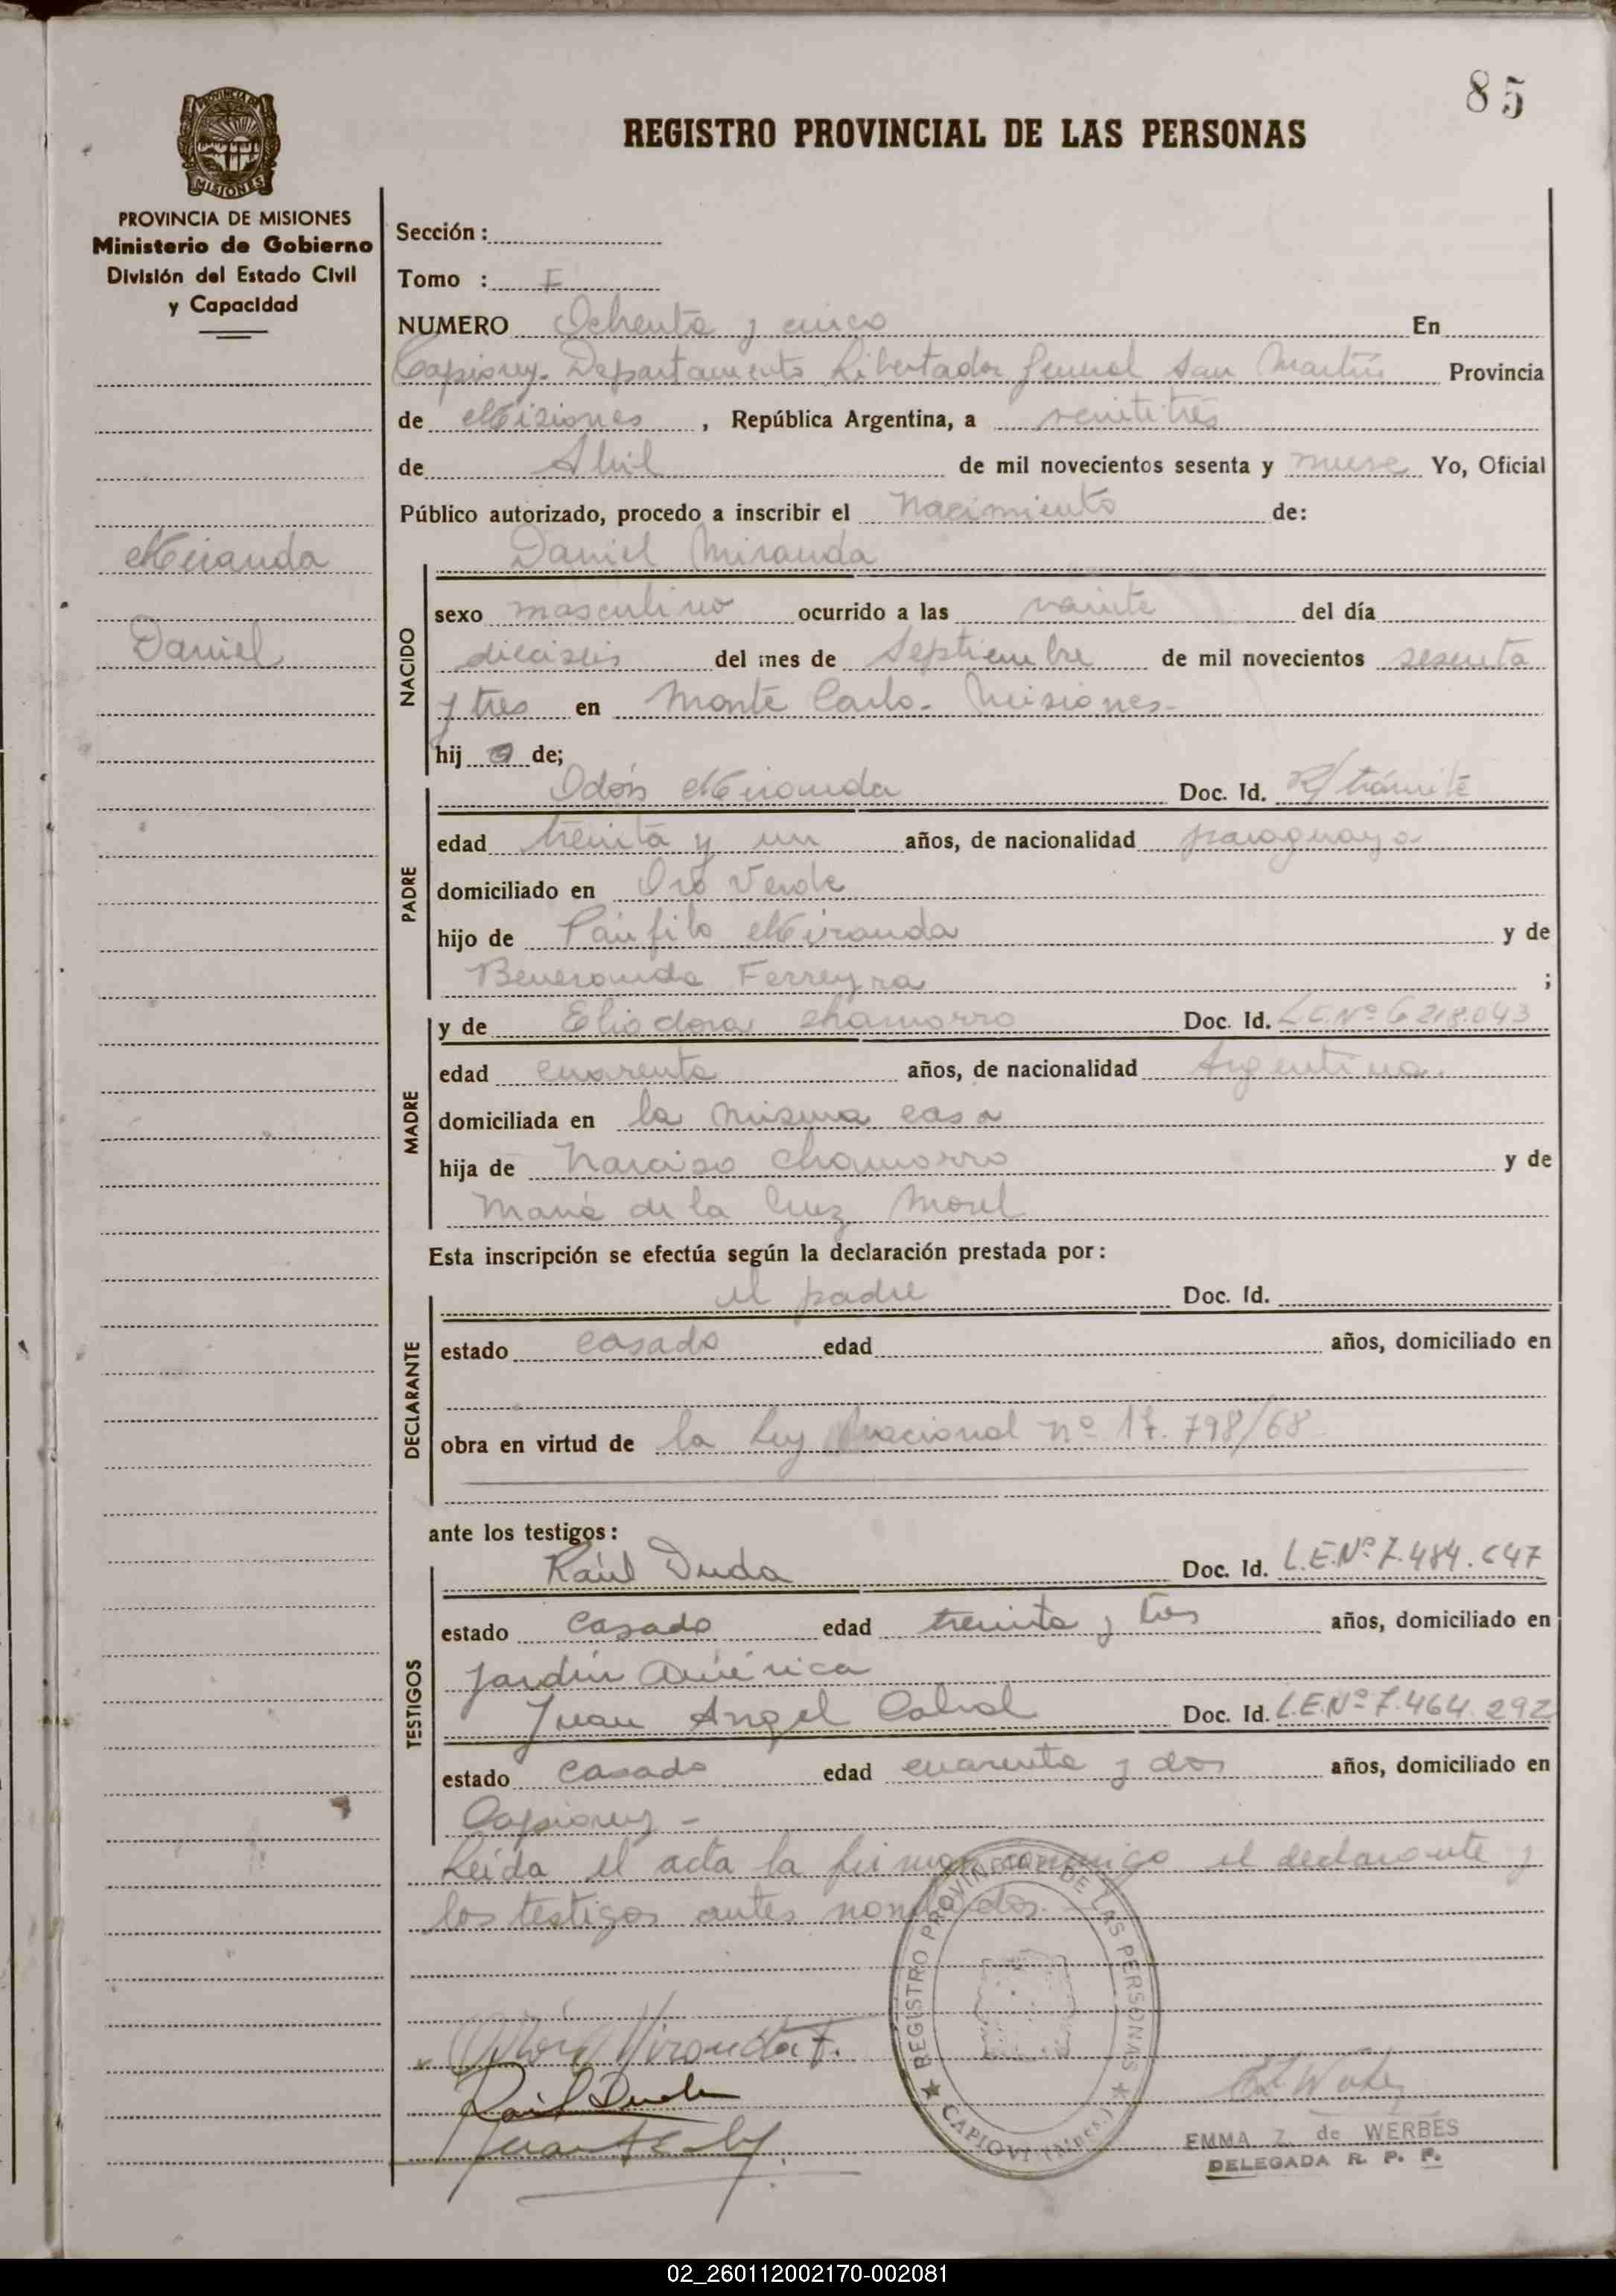 85
REGISTRO PROVINCIAL DE LAS PERSONAS
PROVINCIA DE MISIONES
MISIONES
PROVINCIA DE MISIONES
Ministerio de Gobierno
División del Estado Civil
y Capacidad
Miranda
Daniel
Sección :
Tomo : I
NUMERO Ochenta y cinco En
Capiovy. Departamento Libertador General San Martín Provincia
de Misiones , República Argentina, a veintitrés
de Abril de mil novecientos sesenta y nueve Yo, Oficial
Público autorizado, procedo a inscribir el Nacimiento de:
Daniel Miranda
NACIDO
sexo masculino ocurrido a las veinte del día
dieciseis del mes de Septiembre de mil novecientos sesenta
y tres en Monte Carlo - Misiones -
hij o de;
PADRE
Odón Miranda Doc. Id. R/ trámite
edad treinta y un años, de nacionalidad paraguaya
domiciliado en Oro Verde
hijo de Pánfilo Miranda y de
Beneranda Ferreyra ;
MADRE
y de Eliodora Chamorro Doc. Id. L.C.Nº 6 218.043
edad cuarenta años, de nacionalidad Argentina.
domiciliada en la misma casa
hija de Narciso Chamorro y de
María de la Cruz Morel
Esta inscripción se efectúa según la declaración prestada por :
DECLARANTE
el padre Doc. Id.
estado casado edad años, domiciliado en
obra en virtud de la Ley Nacional nº 17. 798/68
ante los testigos :
TESTIGOS
Raúl Duda Doc. Id. L.E.Nº 7.484.647
estado casado edad treinta y tres años, domiciliado en
Jardín América
Juan Angel Cabral Doc. Id. L.E.Nº 7.464.292
estado casado edad cuarenta y dos años, domiciliado en
Capiovy -
Leída el acta la firman conmigo el declarante y
los testigos antes nombrados.
REGISTRO PROVINCIAL DE LAS PERSONAS
CAPIOVI (Mnes.)
Odón Miranda F.
Raúl Duda
EMMA Z. de WERBES
DELEGADA R. P. P.
02_260112002170-002081